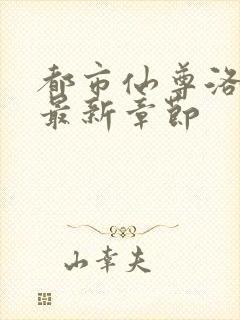 都市仙尊洛
最新章節
山幸夫